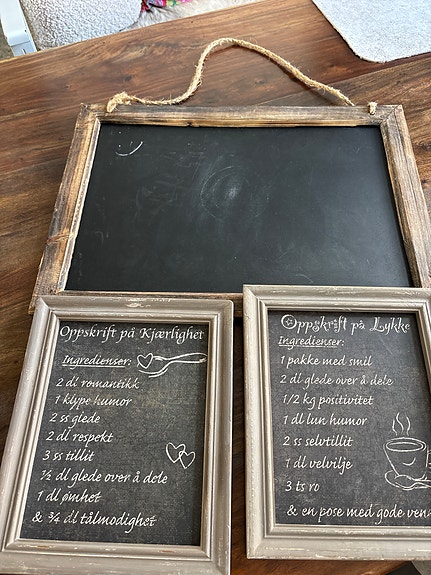 Oppskrift på Kjærlighet
Ingredienser:
2 dl romantikk
1 klype humor
2 ss glede
2 dl respekt
3 ss tillit
½ dl glede over å dele
1 dl ømhet
& ¾ dl tålmodighet
Oppskrift på Lykke
Ingredienser:
1 pakke med smil
2 dl glede over å dele
1/2 kg positivitet
1 dl lun humor
2 ss selvtillit
1 dl velvilje
3 ts ro
& en pose med gode